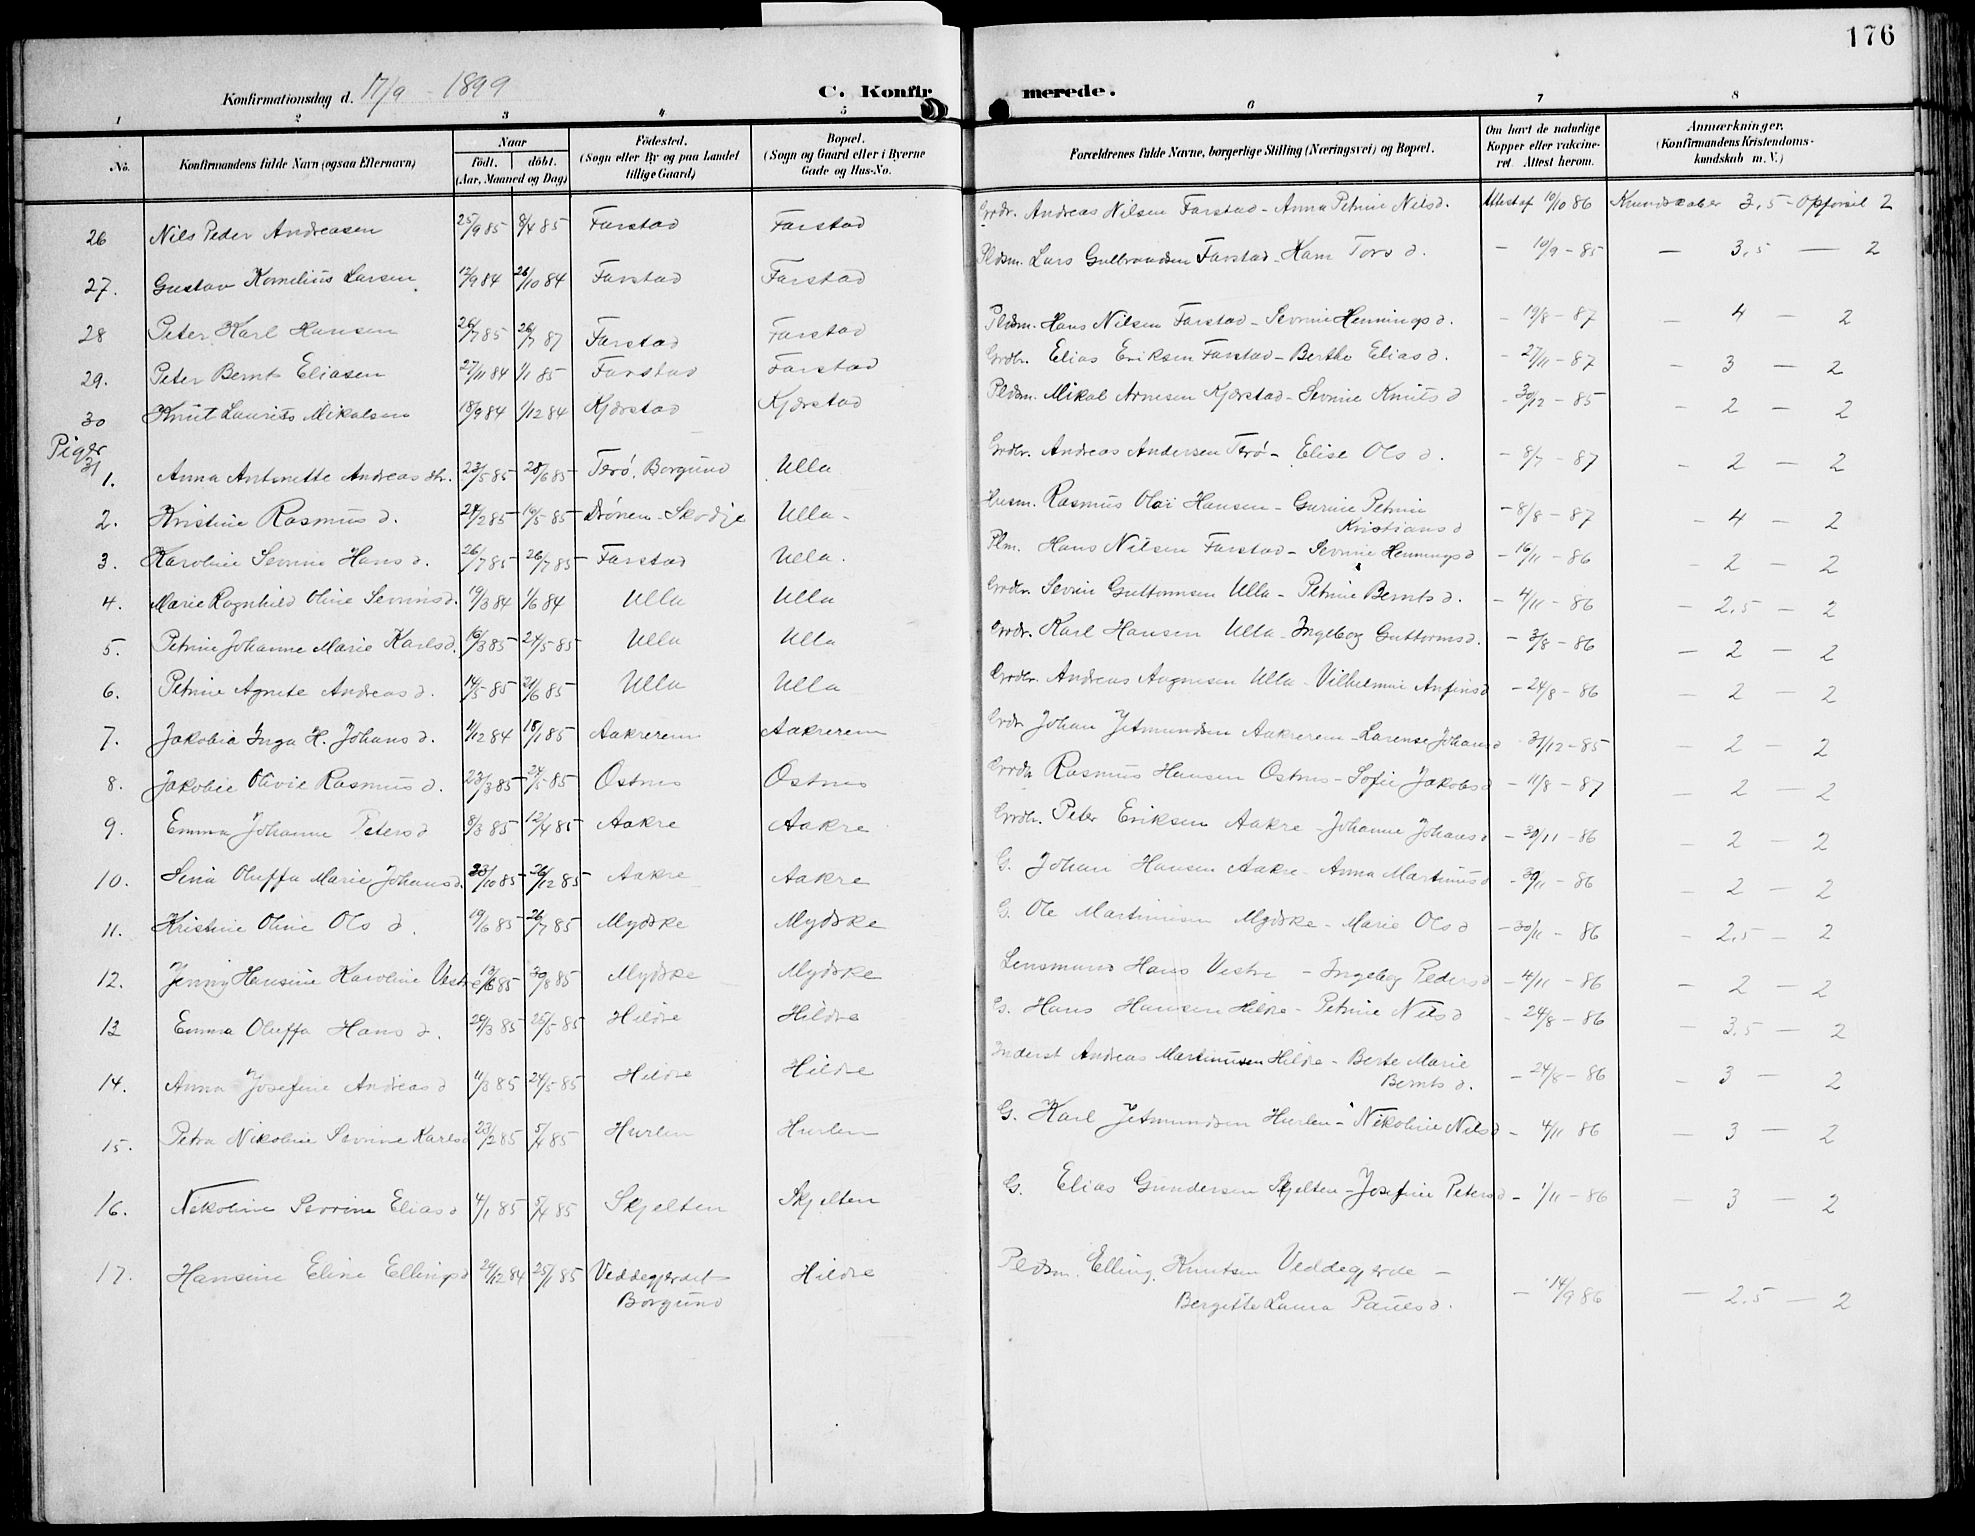 176
Konfirmationsdag d. 17/9 - 1899
C. Konfirmerede.
1 2 3 4 5 6 7 8
No.
Konfirmandens fulde Navn (ogsaa Efternavn)
Naar
födt. döbt.
(Aar, Maaned og Dag)
Födested.
(Sogn eller By og paa Landet
tillige Gaard)
Bopæl.
(Sogn og Gaard eller i Byerne
Gade og Hus-No.
Forældrenes fulde Navne, borgerlige Stilling (Næringsvei) og Bopæl.
Om havt de naturlige
Kopper eller vakcine-
ret. Attest herom.
Anmærkninger.
(Konfirmandens Kristendoms-
kundskab m. V.)
26 Nils Peder Andreasen 25/9 85 8/4 85 Farstad Farstad Grdr. Andreas Nilsen Farstad - Anna Petrine Nilsd. Attest af 10/10 86 Kundskaber 3,5 - Opførsel 2
27. Gustav Kornelius Larsen 12/9 84 26/10 84 Farstad Farstad Pldsm. Lars Gulbrandsen Farstad - Hans Torsd. - 10/9 - 85 - 3,5 - 2
28 Peter Karl Hansen 26/7 85 26/7 87 Farstad Farstad Pldsm. Hans Nilsen Farstad - Sevrine Henningsd. - 19/8 - 87 - 4 - 2
29. Peter Bernt Eliasen 27/11 84 1/1 85 Farstad Farstad Grdbr. Elias Eriksen Farstad - Berthe Eliasd. - 27/11 - 87 - 3 - 2
30 Knut Laurits Mikalsen 18/9 84 1/12 84 Kjærstad Kjærstad Pldsm. Mikal Arnesen Kjærstad - Sevrine Knutsd - 30/12 - 85 - 2 - 2
Piger
31
1. Anna Antonette Andreasdtr. 23/5 85 28/6 85 Terø, Borgund Ulla Grdbr. Andreas Andersen Terø - Elise Olsd. - 8/7 - 87 - 2 - 2
2. Kristine Rasmusd. 24/2 85 16/5 85 Drønen - Skodje Ulla - Husm. Rasmus Olai Hansen - Gurine Petrine
Kristiansd - 8/8 - 87 - 4 - 2
3. Karoline Sevrine Hansd. 26/7 85 26/7 85 Farstad Ulla. Plm. Hans Nilsen Farstad - Sevrine Henningsd - 16/11 - 86 - 2 - 2
4. Marie Ragnhild Oline Sevrinsd. 19/3 84 1/6 84 Ulla Ulla Grdbr. Sevrin Guttormsen Ulla - Petrine Berntsd. - 4/11 - 86 - 2,5 - 2
5. Petrine Johanne Marie Karlsd. 16/3 85 24/5 85 Ulla Ulla Grdr. Karl Hansen Ulla - Ingeborg Guttormsd. - 3/8 - 86 - 2 - 2
6. Petrine Agnete Andreasd. 14/5 85 21/6 85 Ulla Ulla Grdbr. Andreas Aagesen Ulla - Vilhelmine Anfinsd - 24/8 - 86 - 2 - 2
7. Jakobia Inga H. Johansd. 11/12 84 18/1 85 Aakrerem Aakrerem Grdr. Johan Jetmundsen Aakrerem - Larense Johansd 31/12 - 85 - 2 - 2
8. Jakobie Olivie Rasmusd. 23/3 85 24/5 85 Ostnes Ostnes Grdr. Rasmus Hansen Ostnes - Sofie Jakobsd - 11/8 - 87 - 2 - 2
9. Emma Johanne Petersd 8/3 85 12/4 85 Aakre Aakre Grdbr. Peter Eriksen Aakre - Johanne Johansd - 30/11 - 86 - 2 - 2
10. Sina Oluffa Marie Johansd. 23/10 85 26/12 85 Aakre Aakre G. Johan Hansen Aakre - Anna Martinusd - 30/11 - 86 - 2 - 2
11. Kristine Oline Olsd. 19/6 85 26/7 85 Mydske Mydske G. Ole Martinusen Mydske - Marie Olsd - 30/11 - 86 - 2,5 - 2
12. Jenny Hansine Karoline Vestre 13/6 85 30/8 85 Mydske Mydske Lensmand Hans Vestre - Ingeborg Pedersd - 4/11 - 86 - 2 - 2
13 Emma Oluffa Hansd. 29/3 85 25/5 85 Hildre Hildre G. Hans Hansen Hildre - Petrine Nilsd - 24/8 - 86 - 3,5 - 2
14. Anna Josefine Andreasd 11/3 85 24/5 85 Hildre Hildre Inderst Andreas Martinusen Hildre - Berte Marie
Berntsd. - 24/8 - 86 - 3 - 2
15. Petra Nikoline Sevrine Karlsd 23/2 85 5/4 85 Hurlen Hurlen G. Karl Jetmundsen Hurlen - Nikoline Nilsd - 4/11 86 - 3 - 2
16. Nikoline Sevrine Eliasd 4/1 85 5/4 85 Skjelten Skjelten G. Elias Gundersen Skjelten - Josefine Petersd - 1/11 - 86 - 3 - 2
17. Hansine Eline Ellingsd 29/12 84 25/1 85 Veddegjerdet
Borgund Hildre Pldsm. Elling Knutsen Veddegjerde -
Bergitte Laura Paulsd. - 14/9 86 - 2,5 - 2